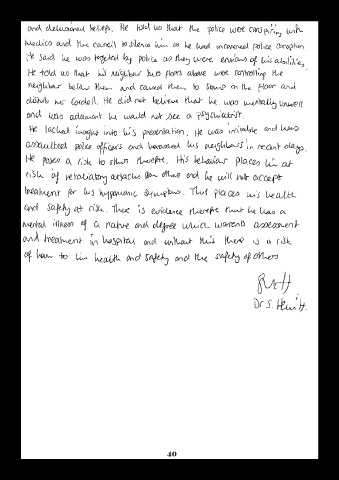 and delusional beliefs. He told us that the police were conspiring with
medics and the council to silence him as he had uncovered police corruption
He said he was targeted by police as they were envious of his abilities.
He told us that his neighbour two floors above were controlling the
neighbour below them and caused them to stomp on the floor and
disturb Mr He did not believe that he was mentally unwell
and was adamant he would not see a psychiatrist.
He lacked insight into his presentation. He was irritable and has
assaulted police officers and harassed his neighbours in recent days.
He poses a risk to others therefore. His behaviour places him at
risk of retaliatory attacks from others and he will not accept
treatment for his hypomanic symptoms. This places his health
and safety at risk. There is evidence therefore that he has a
mental illness of a nature and degree which warrants assessment
and treatment in hospital and without this there is a risk
of harm to his health and safety and the safety of others
Dr S.
40